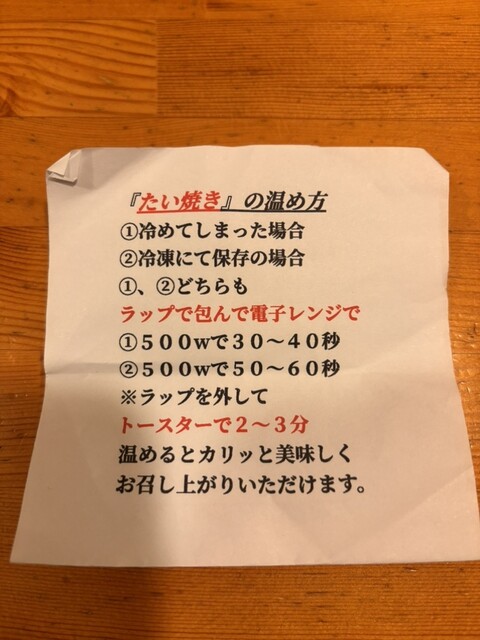 『たい焼き』の温め方
①冷めてしまった場合
②冷凍にて保存の場合
①、②どちらも
ラップで包んで電子レンジで
①５００wで３０～４０秒
②５００wで５０～６０秒
※ラップを外して
トースターで２～３分
温めるとカリッと美味しく
お召し上がりいただけます。